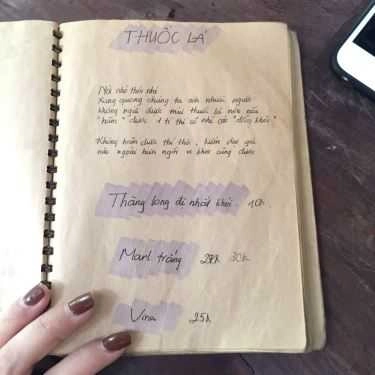 THUỐC LÁ
Nói nhỏ thôi nhé
Xung quanh chúng ta có nhiều người
không ngửi được mùi thuốc lá nên nếu
"hãm" được 1 tí thì cố nhé các "đồng khói"
Không hãm được thì thôi, kiếm đại ghế
nào ngoài hiên ngồi vi khói cũng được
Thăng long đệ nhất khói 10k
Marl trắng 28k 30k
Vina 25k